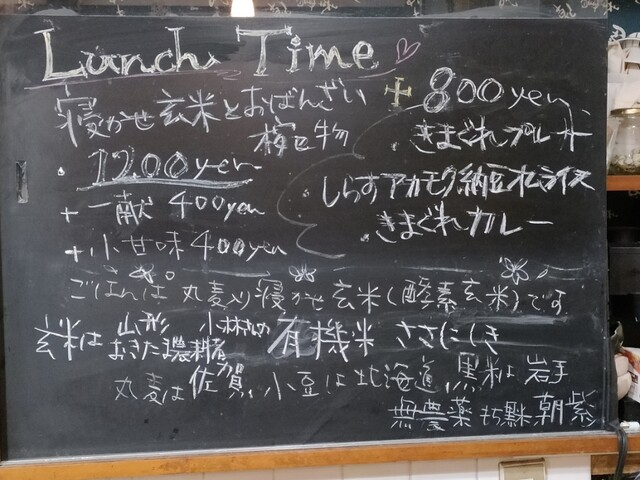 Lunch Time
寝かせ玄米とおばんざい
+800yen
・きまぐれプレート
・1200yen
+一献 400yen
しらすアカモク納豆オムライス
・きまぐれカレー
+小甘味 400yen
ごはんは 丸麦入り寝かせ玄米(酵素玄米)です
玄米は 山形 小林さんの 有機米 ささにしき
おきたま農耕者
丸麦は 佐賀、小豆は北海道、黒米は 岩手
無農薬 もち黒米 朝紫